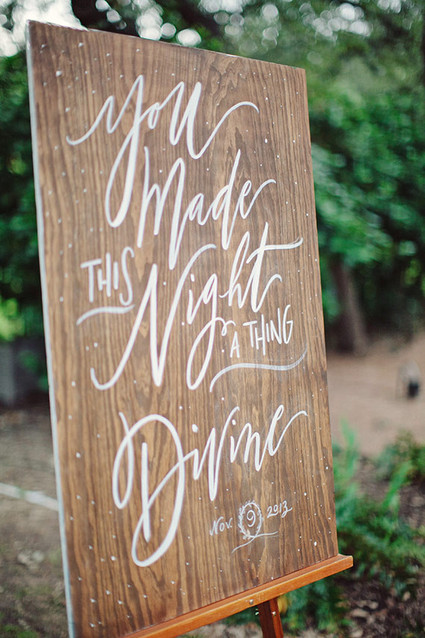 You
Made
THIS Night
A THING
Divine
Nov. 9 2013